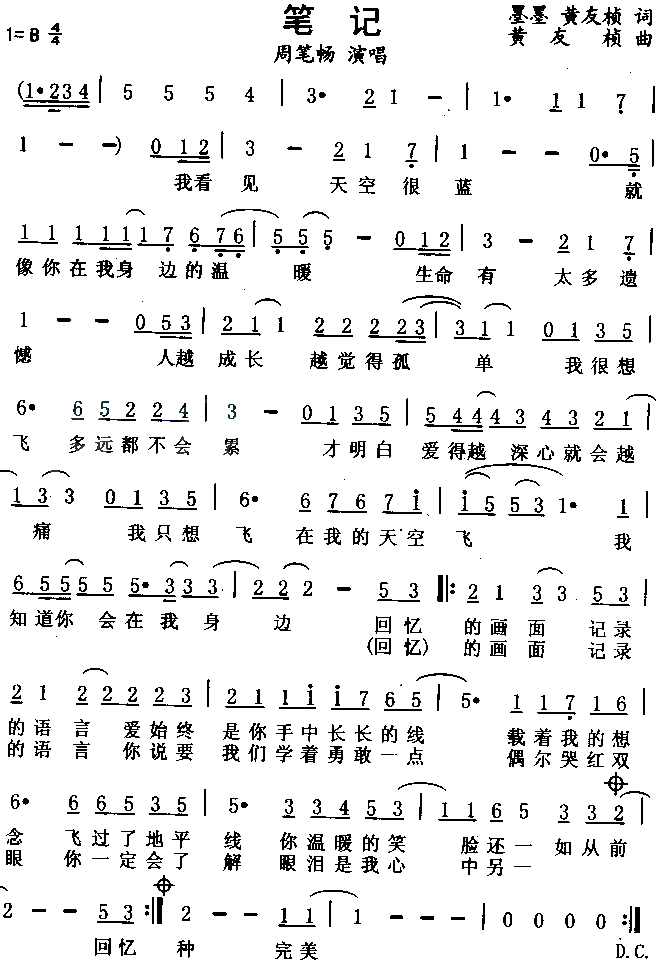 笔记
1=B 4/4
墨墨 黄友桢 词
黄友桢 曲
周笔畅 演唱
(1•234 | 5 5 5 4 | 3• 2 1 - | 1• 1 1 7 |
1 - -) 0 1 2 | 3 - 2 1 7 | 1 - - 0•5 |
我看见 天空很蓝 就
1 1 1 1 1 1 7 6 7 6 | 5 5 5 - 0 1 2 | 3 - 2 1 7 |
像你在我身边的温暖 生命有太多遗
1 - - 0 5 3 | 2 1 1 2 2 2 2 3 | 3 1 1 0 1 3 5 |
憾 人越成长 越觉得孤单 我很想
6• 6 5 2 2 4 | 3 - 0 1 3 5 | 5 4 4 4 3 4 3 2 1 |
飞 多远都不会累 才明白 爱得越深心就会越
1 3 3 0 1 3 5 | 6• 6 7 6 7 1 | 1 5 5 5 3 1• 1 |
痛 我只想飞 在我的天空飞 我
6 5 5 5 5 5• 3 3 3 | 2 2 2 - 5 3 ‖: 2 1 3 3 5 3 |
知道你会在我身边 回忆的画面 记录
(回忆)的画面 记录
2 1 2 2 2 2 3 | 2 1 1 1 1 7 6 5 | 5• 1 1 7 1 6 |
的语言 爱始终 是你手中长长的线 载着我的想
的语言 你说要 我们学着勇敢一点 偶尔哭红双
6• 6 6 5 3 5 | 5• 3 3 4 5 3 | 1 1 6 5 3 3 2 |
念 飞过了地平线 你温暖的笑脸还一如从前
眼 你一定会了解 眼泪是我心中另一
2 - 5 3 :‖ 2 - 1 1 | 1 - - - | 0 0 0 0 :‖
回忆 种 完美 D.C.